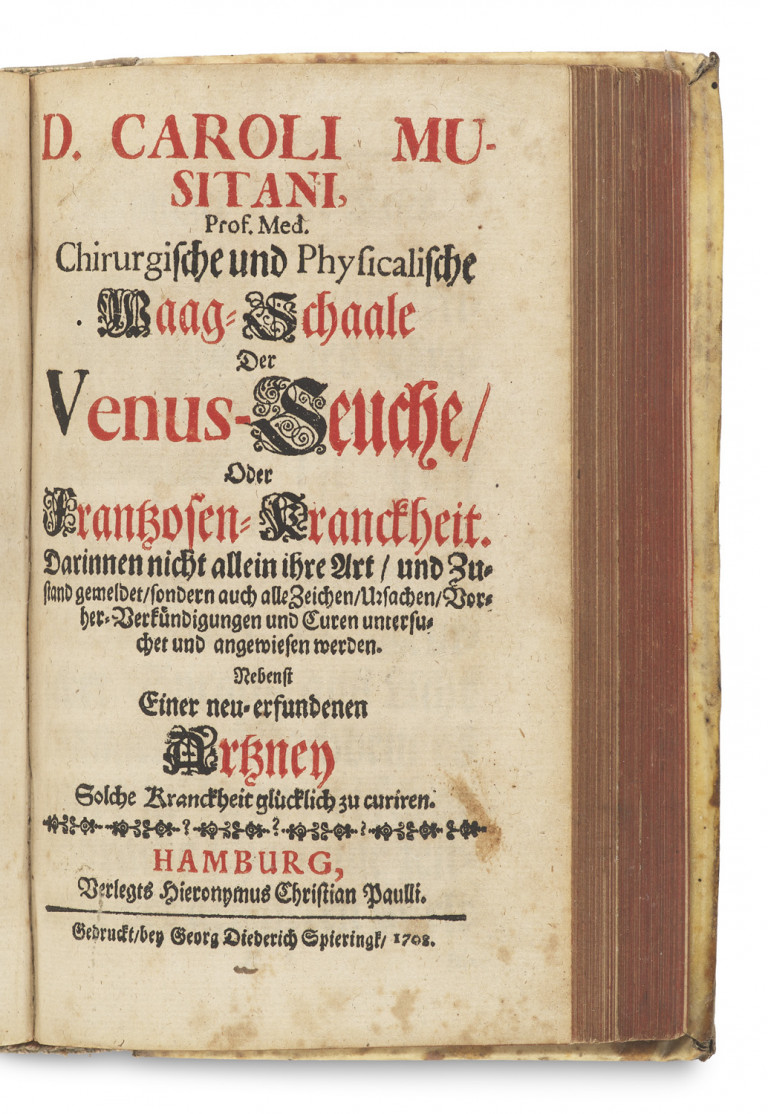 D. CAROLI MU-
SITANI,
Prof. Med.
Chirurgische und Physicalische
Waag-Schaale
Der
Venus-Seuche/
Oder
Frantzosen-Kranckheit.
Darinnen nicht allein ihre Art / und Zu-
stand gemeldet/sondern auch alle Zeichen/Ursachen/Vor-
her-Verkündigungen und Curen untersu-
chet und angewiesen werden.
Nebenst
Einer neu-erfundenen
Artzney
Solche Kranckheit glücklich zu curiren.
HAMBURG,
Verlegts Hieronymus Christian Paulli.
Gedruckt/bey Georg Diederich Spieringk/ 1708.